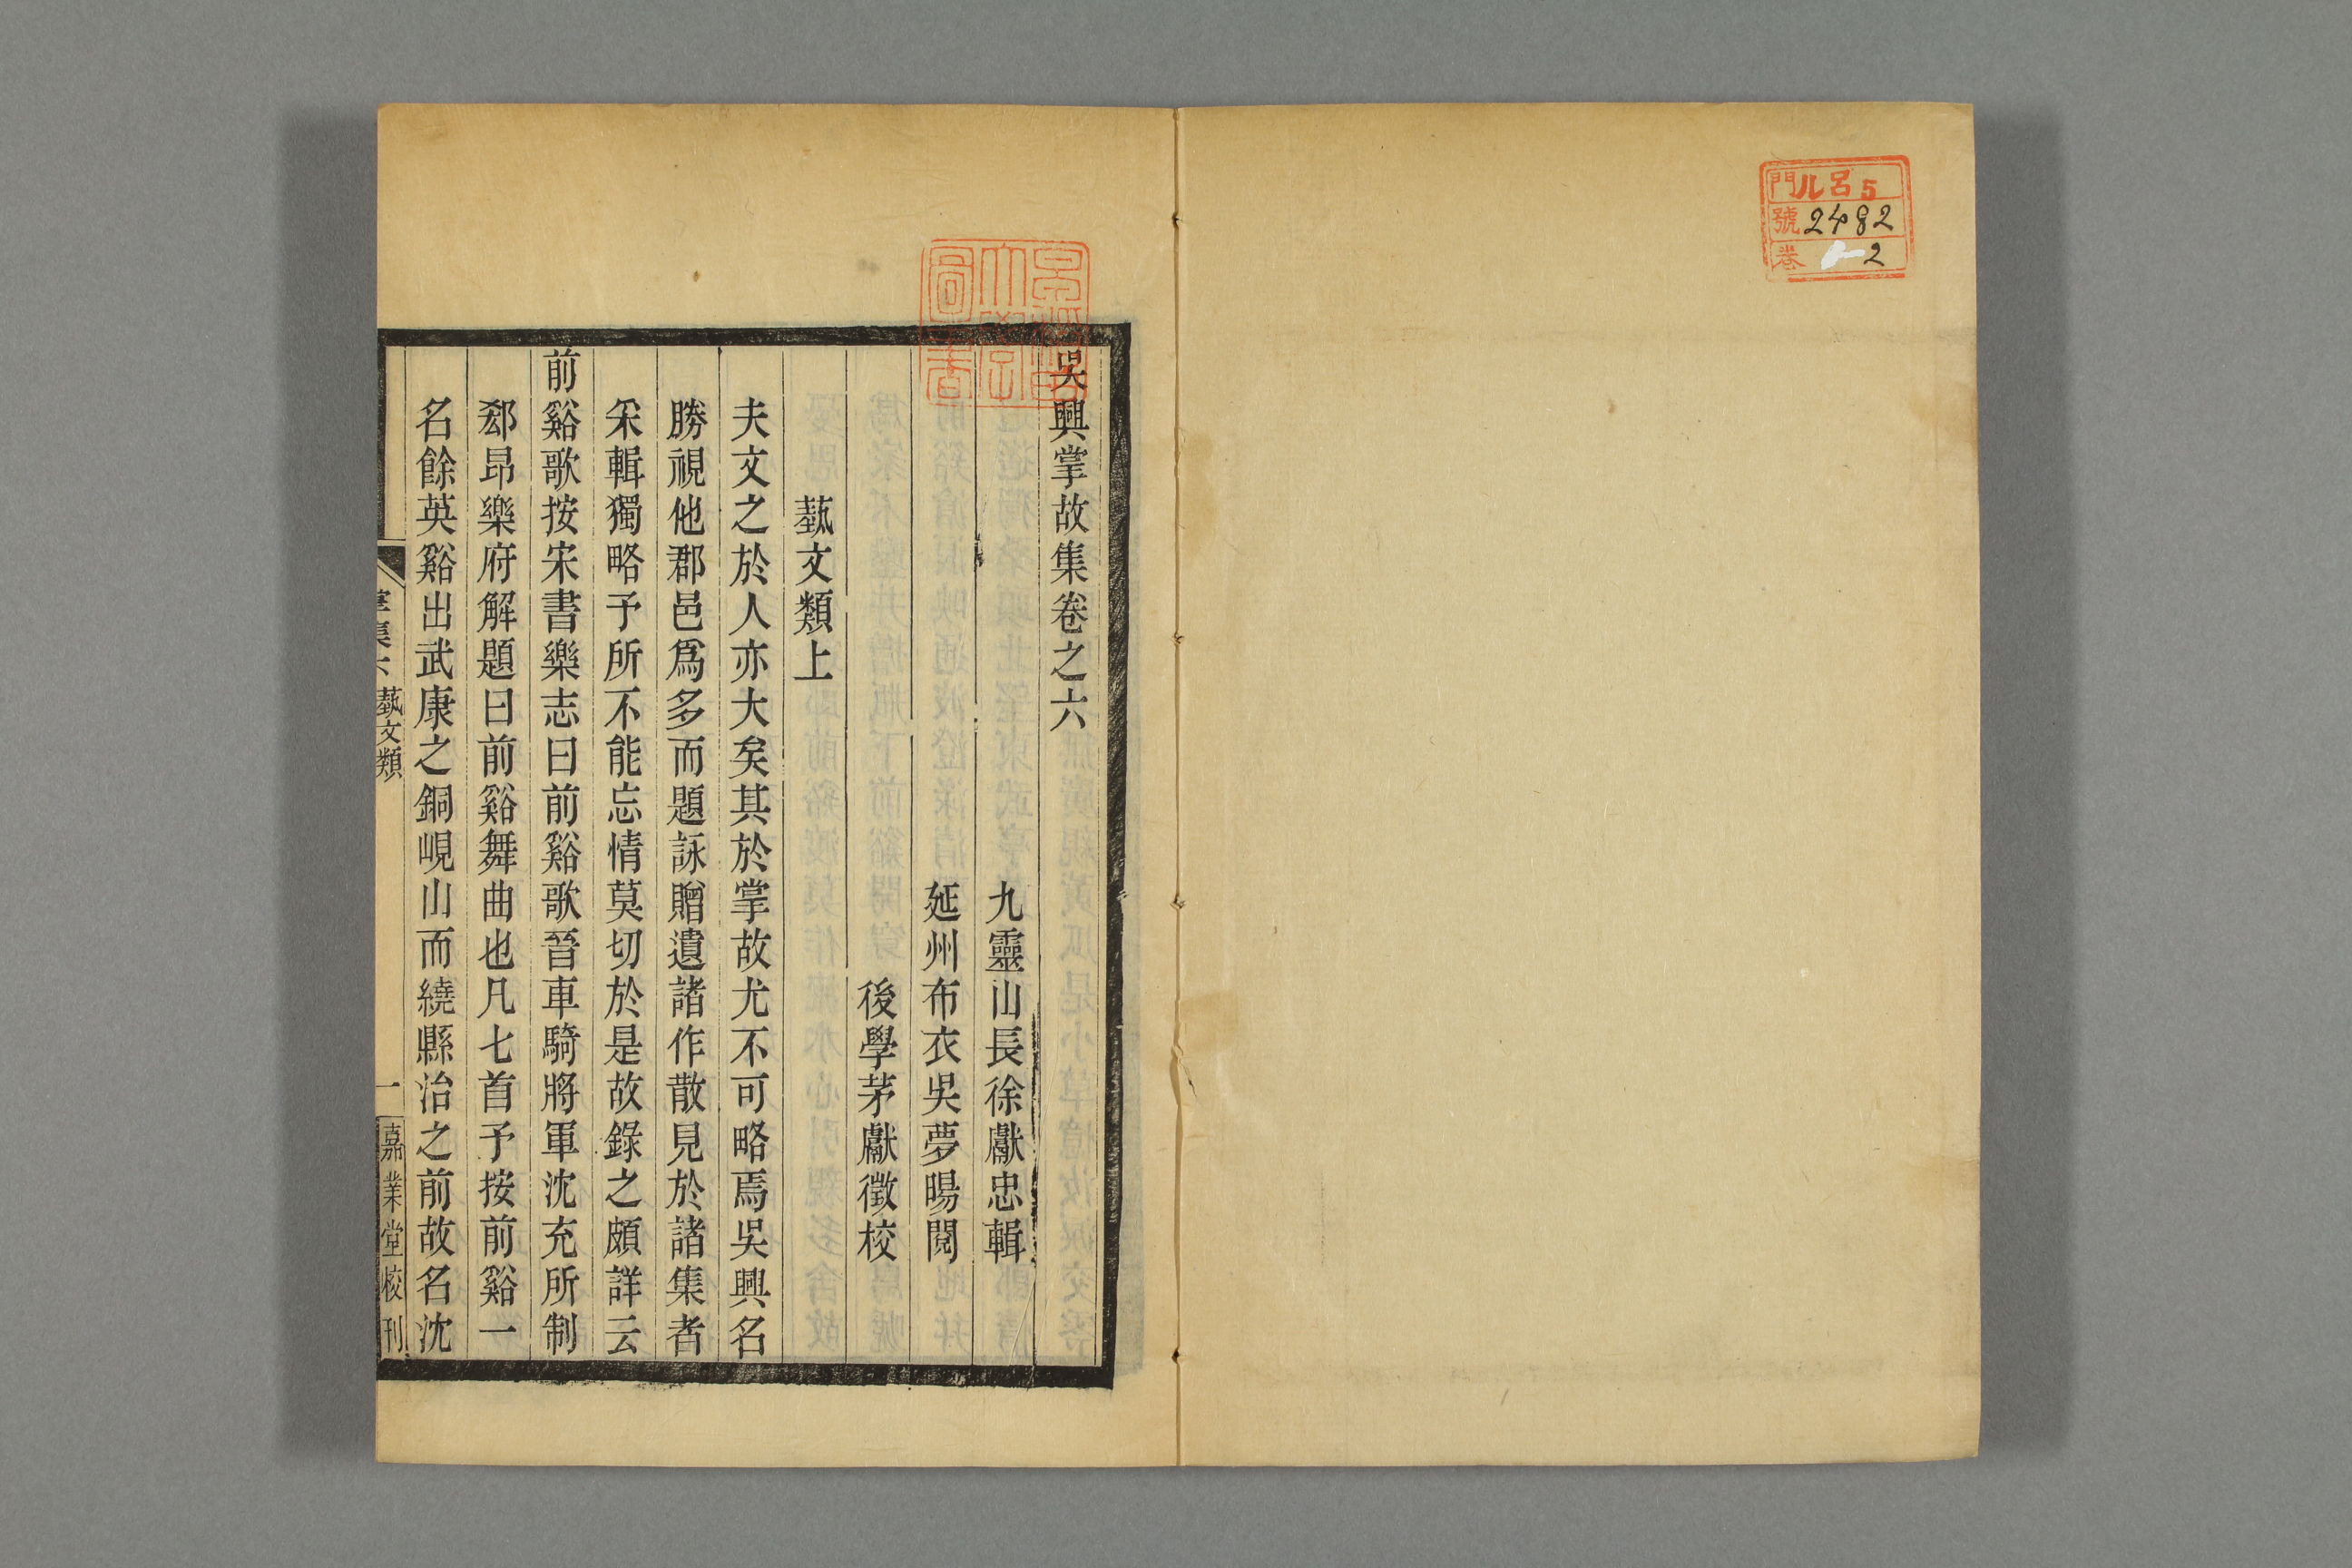 門 ル 呂 5
號 2482
卷 2
吳興掌故集卷之六
九靈山長徐獻忠輯
延州布衣吳夢暘閱
後學茅獻徵校
藝文類上
夫文之於人亦大矣其於掌故尤不可略焉吳興名
勝視他郡邑爲多而題詠贈遺諸作散見於諸集者
采輯獨略予所不能忘情莫切於是故錄之頗詳云
前谿歌按宋書樂志曰前谿歌晉車騎將軍沈充所制
郄昂樂府解題曰前谿舞曲也凡七首予按前谿一
名餘英谿出武康之銅峴山而繞縣治之前故名沈
掌集六 藝文類 一 嘉業堂校刊